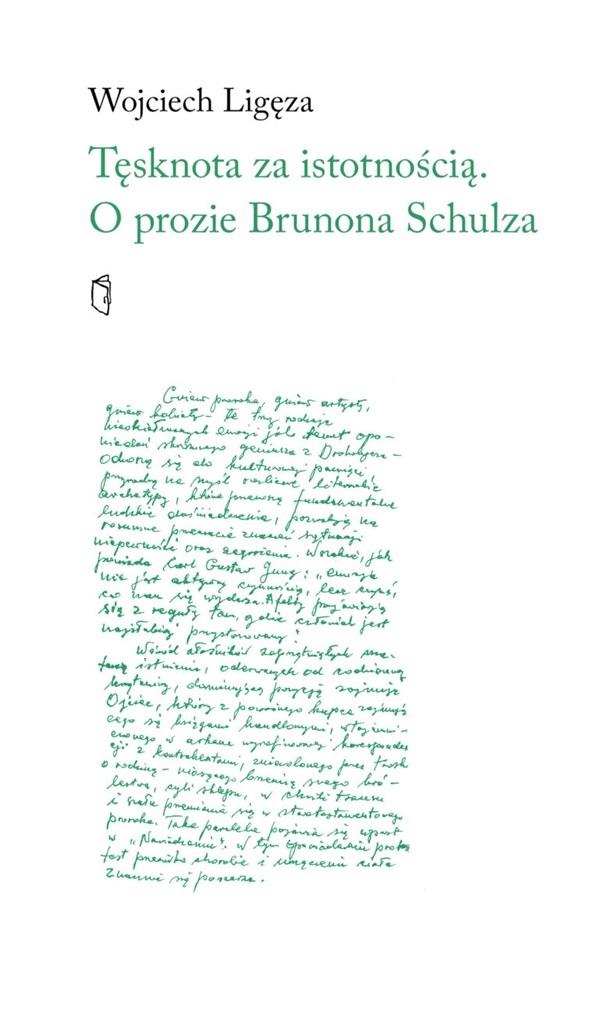 Wojciech Ligęza
Tęsknota za istotnością.
O prozie Brunona Schulza
Gniew proroka, gniew artysty,
gniew kobiety - te trzy rodzaje
emocji jak temat opo-
wiadań skromnego geniusza z Drohobycza -
odnoszą się do kulturowej pamięci,
przywodzą na myśl rozliczne literackie
archetypy, które prawdą fundamentalne
ludzkie doświadczenia, pozwalają na
rozumne znaczeń sytuacji
niepewności oraz zagrożenia. Wszakże, jak
powiada Carl Gustav Jung: "emocja
nie jest aktywną czynnością, lecz czymś,
co nam się wydarza. Afekty pojawiają
się z reguły tam, gdzie człowiek jest
najsłabiej przystosowany".
Wśród
istnienia, oderwanych od codziennej
krzątaniny, dominującą pozycję zajmuje
Ojciec, który z powa­żnego kupca zajmują-
cego się księgami handlowymi, wtajemni-
czonego w arkana wyrafinowanej koresponden
cji z kontrahentami, zniewolonego przez troski
o rodzinę - niosącego brzemię swego kró-
lestwa, czyli sklepu, w chwili transu
i szału przemienia się w starotestamentowego
proroka. Taka paralela pojawia się wprost
w "Nawiedzeniu". W tym opowiadaniu protes
test przeciwko chorobie i umęczeniu ciała
znacznie się poszerza.